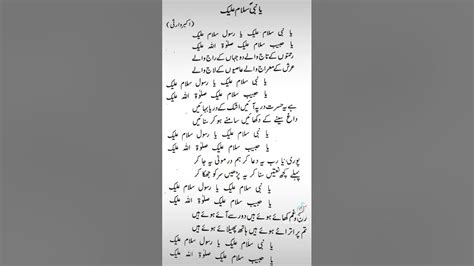 یا نبی سلام علیک
(اکبر وارثی)
یا نبی سلام علیک یا رسول سلام علیک
یا حبیب سلام علیک صلوٰۃ اللہ علیک
رحمتوں کے تاج والے دو جہاں کے راج والے
عرش کے معراج والے عاصیوں کے لاج والے
یا نبی سلام علیک یا رسول سلام علیک
یا حبیب سلام علیک صلوٰۃ اللہ علیک
ہے یہ حسرت در پہ آئیں اشک کے دریا بہائیں
داغ سینے کے دکھائیں سامنے ہو کر سنائیں
یا نبی سلام علیک یا رسول سلام علیک
یا حبیب سلام علیک صلوٰۃ اللہ علیک
پوری یا رب یہ دعا کر ہم در مولیٰ پہ جا کر
پہلے کچھ نعتیں سنا کر یہ پڑھیں سر کو جھکا کر
یا نبی سلام علیک یا رسول سلام علیک
یا حبیب سلام علیک صلوٰۃ اللہ علیک
رنج و غم کھائے ہوئے ہیں دور سے آئے ہوئے ہیں
تم پر اترائے ہوئے ہیں ہاتھ پھیلائے ہوئے ہیں
یا نبی سلام علیک یا رسول سلام علیک
یا حبیب سلام علیک صلوٰۃ اللہ علیک